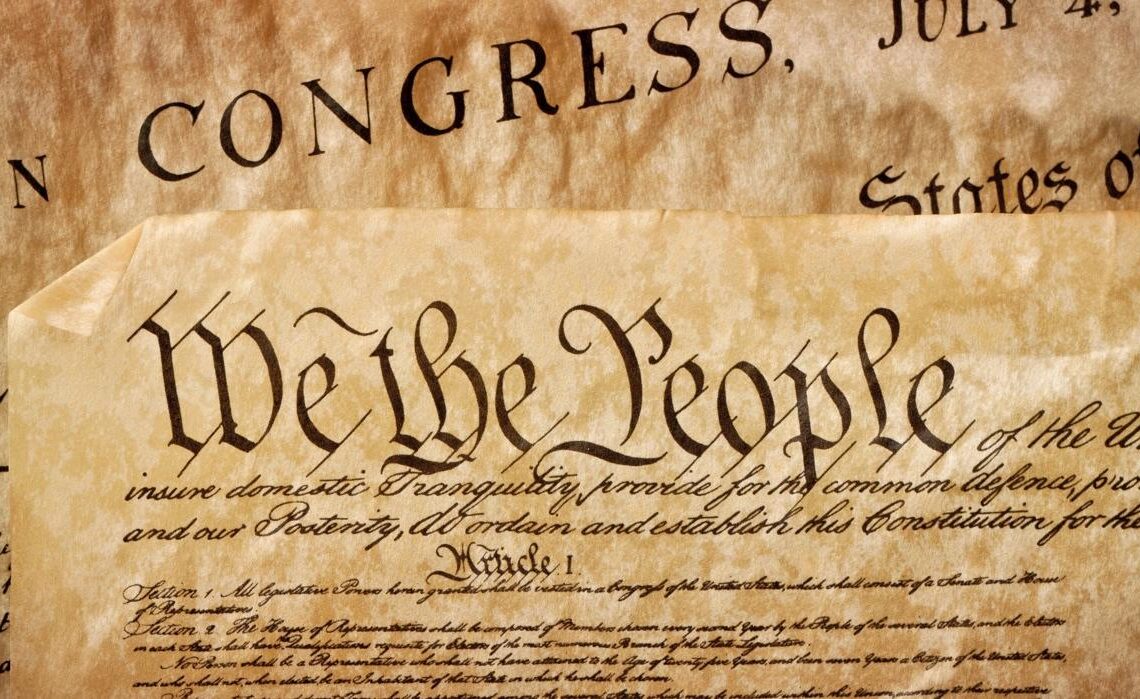 N CONGRESS, JULY 4,
States of
We the People of the U
insure domestic Tranquility, provide for the common defence, pro
and our Posterity, do ordain and establish this Constitution for the
Article I.
Section 1. All legislative Powers herein granted shall be vested in a Congress of the United States, which shall consist of a Senate and House
of Representatives.
Section 2. The House of Representatives shall be composed of Members chosen every second Year by the People of the several States, and the Electors
in each State shall have Qualifications requisite for Electors of the most numerous Branch of the State Legislature.
No Person shall be a Representative who shall not have attained to the Age of twenty five Years, and been seven Years a Citizen of the United States,
and who shall not, when elected, be an Inhabitant of that State in which he shall be chosen.
shall be apportioned among the several States which may be included within this Union, according to their respective